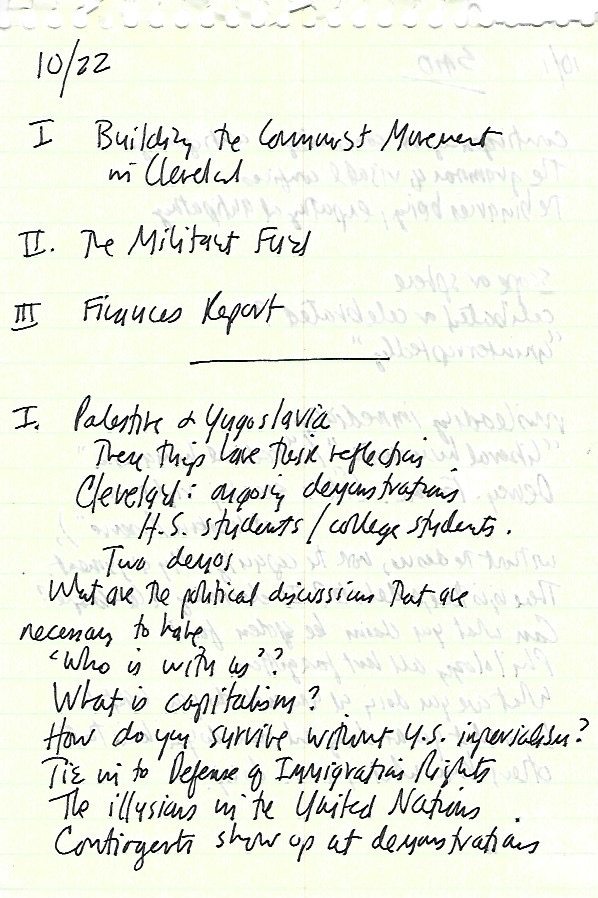 10/22
I Building the Communist Movement
in Cleveland
II. The Militant Fund
III Finances Report
I. Palestine & Yugoslavia
These things have their reflection
Cleveland: ongoing demonstrations
H.S. students / college students.
Two demos
What are the political discussions that are
necessary to have
"Who is with us"?
What is capitalism?
How do you survive without U.S. imperialism?
Tie in to Defense of Immigration Rights
The illusions in the United Nations
Contingents show up at demonstrations